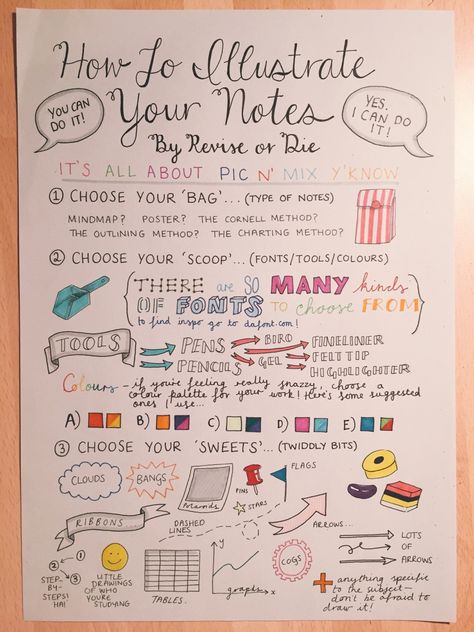 How To Illustrate
Your Notes
By Revise or Die
YOU CAN
DO IT!
YES,
I CAN DO
IT!
IT'S ALL ABOUT PIC N' MIX Y'KNOW
① CHOOSE YOUR 'BAG'... (TYPE OF NOTES)
MINDMAP? POSTER? THE CORNELL METHOD?
THE OUTLINING METHOD? THE CHARTING METHOD?
② CHOOSE YOUR 'SCOOP'... (FONTS/TOOLS/COLOURS)
THERE are SO MANY kinds
OF FONTS TO choose FROM
to find inspo go to dafont.com!
TOOLS
PENS
PENCILS
BIRO
GEL
FINELINER
FELT TIP
HIGHLIGHTER
Colours - if you're feeling really snazzy, choose a
colour palette for your work! Here's some suggested
ones I use...
A) B) C) D) E)
③ CHOOSE YOUR 'SWEETS'... (TWIDDLY BITS)
CLOUDS
BANGS
Polaroids
PINS
STARS
FLAGS
RIBBONS...
DASHED
LINES
ARROWS...
LOTS
OF
ARROWS
② ①
③
STEP-
BY-
STEPS!
HA!
LITTLE
DRAWINGS
OF WHO
YOU'RE
STUDYING
TABLES.
y
x
graphs
COGS
+ anything specific
to the subject-
don't be afraid to
draw it!